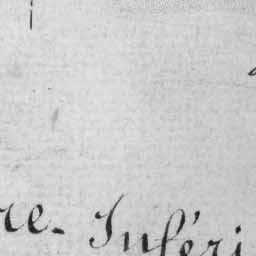 re- Inféri